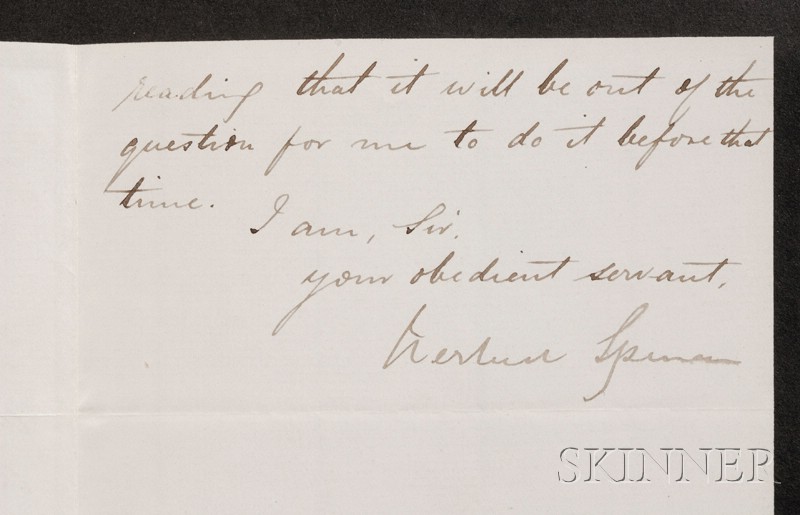 reading that it will be out of the
question for me to do it before that
time.
I am, Sir.
your obedient servant,
Herbert Spencer
SKINNER